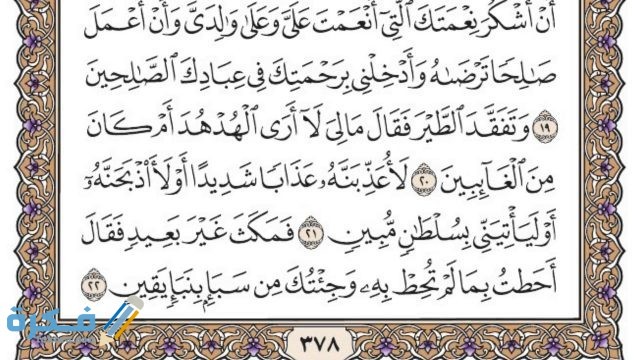 أَنْ أَشْكُرَ نِعْمَتَكَ الَّتِي أَنْعَمْتَ عَلَيَّ وَعَلَىٰ وَالِدَيَّ وَأَنْ أَعْمَلَ
صَالِحًا تَرْضَاهُ وَأَدْخِلْنِي بِرَحْمَتِكَ فِي عِبَادِكَ الصَّالِحِينَ
١٩ وَتَفَقَّدَ الطَّيْرَ فَقَالَ مَالِيَ لَا أَرَى الْهُدْهُدَ أَمْ كَانَ
مِنَ الْغَائِبِينَ ٢٠ لَأُعَذِّبَنَّهُ عَذَابًا شَدِيدًا أَوْ لَأَاذْبَحَنَّهُ
أَوْ لَيَأْتِيَنِّي بِسُلْطَانٍ مُّبِينٍ ٢١ فَمَكَثَ غَيْرَ بَعِيدٍ فَقَالَ
أَحَطتُ بِمَا لَمْ تُحِطْ بِهِ وَجِئْتُكَ مِن سَبَإٍ بِنَبَإٍ يَقِينٍ ٢٢
٣٧٨
فكرة